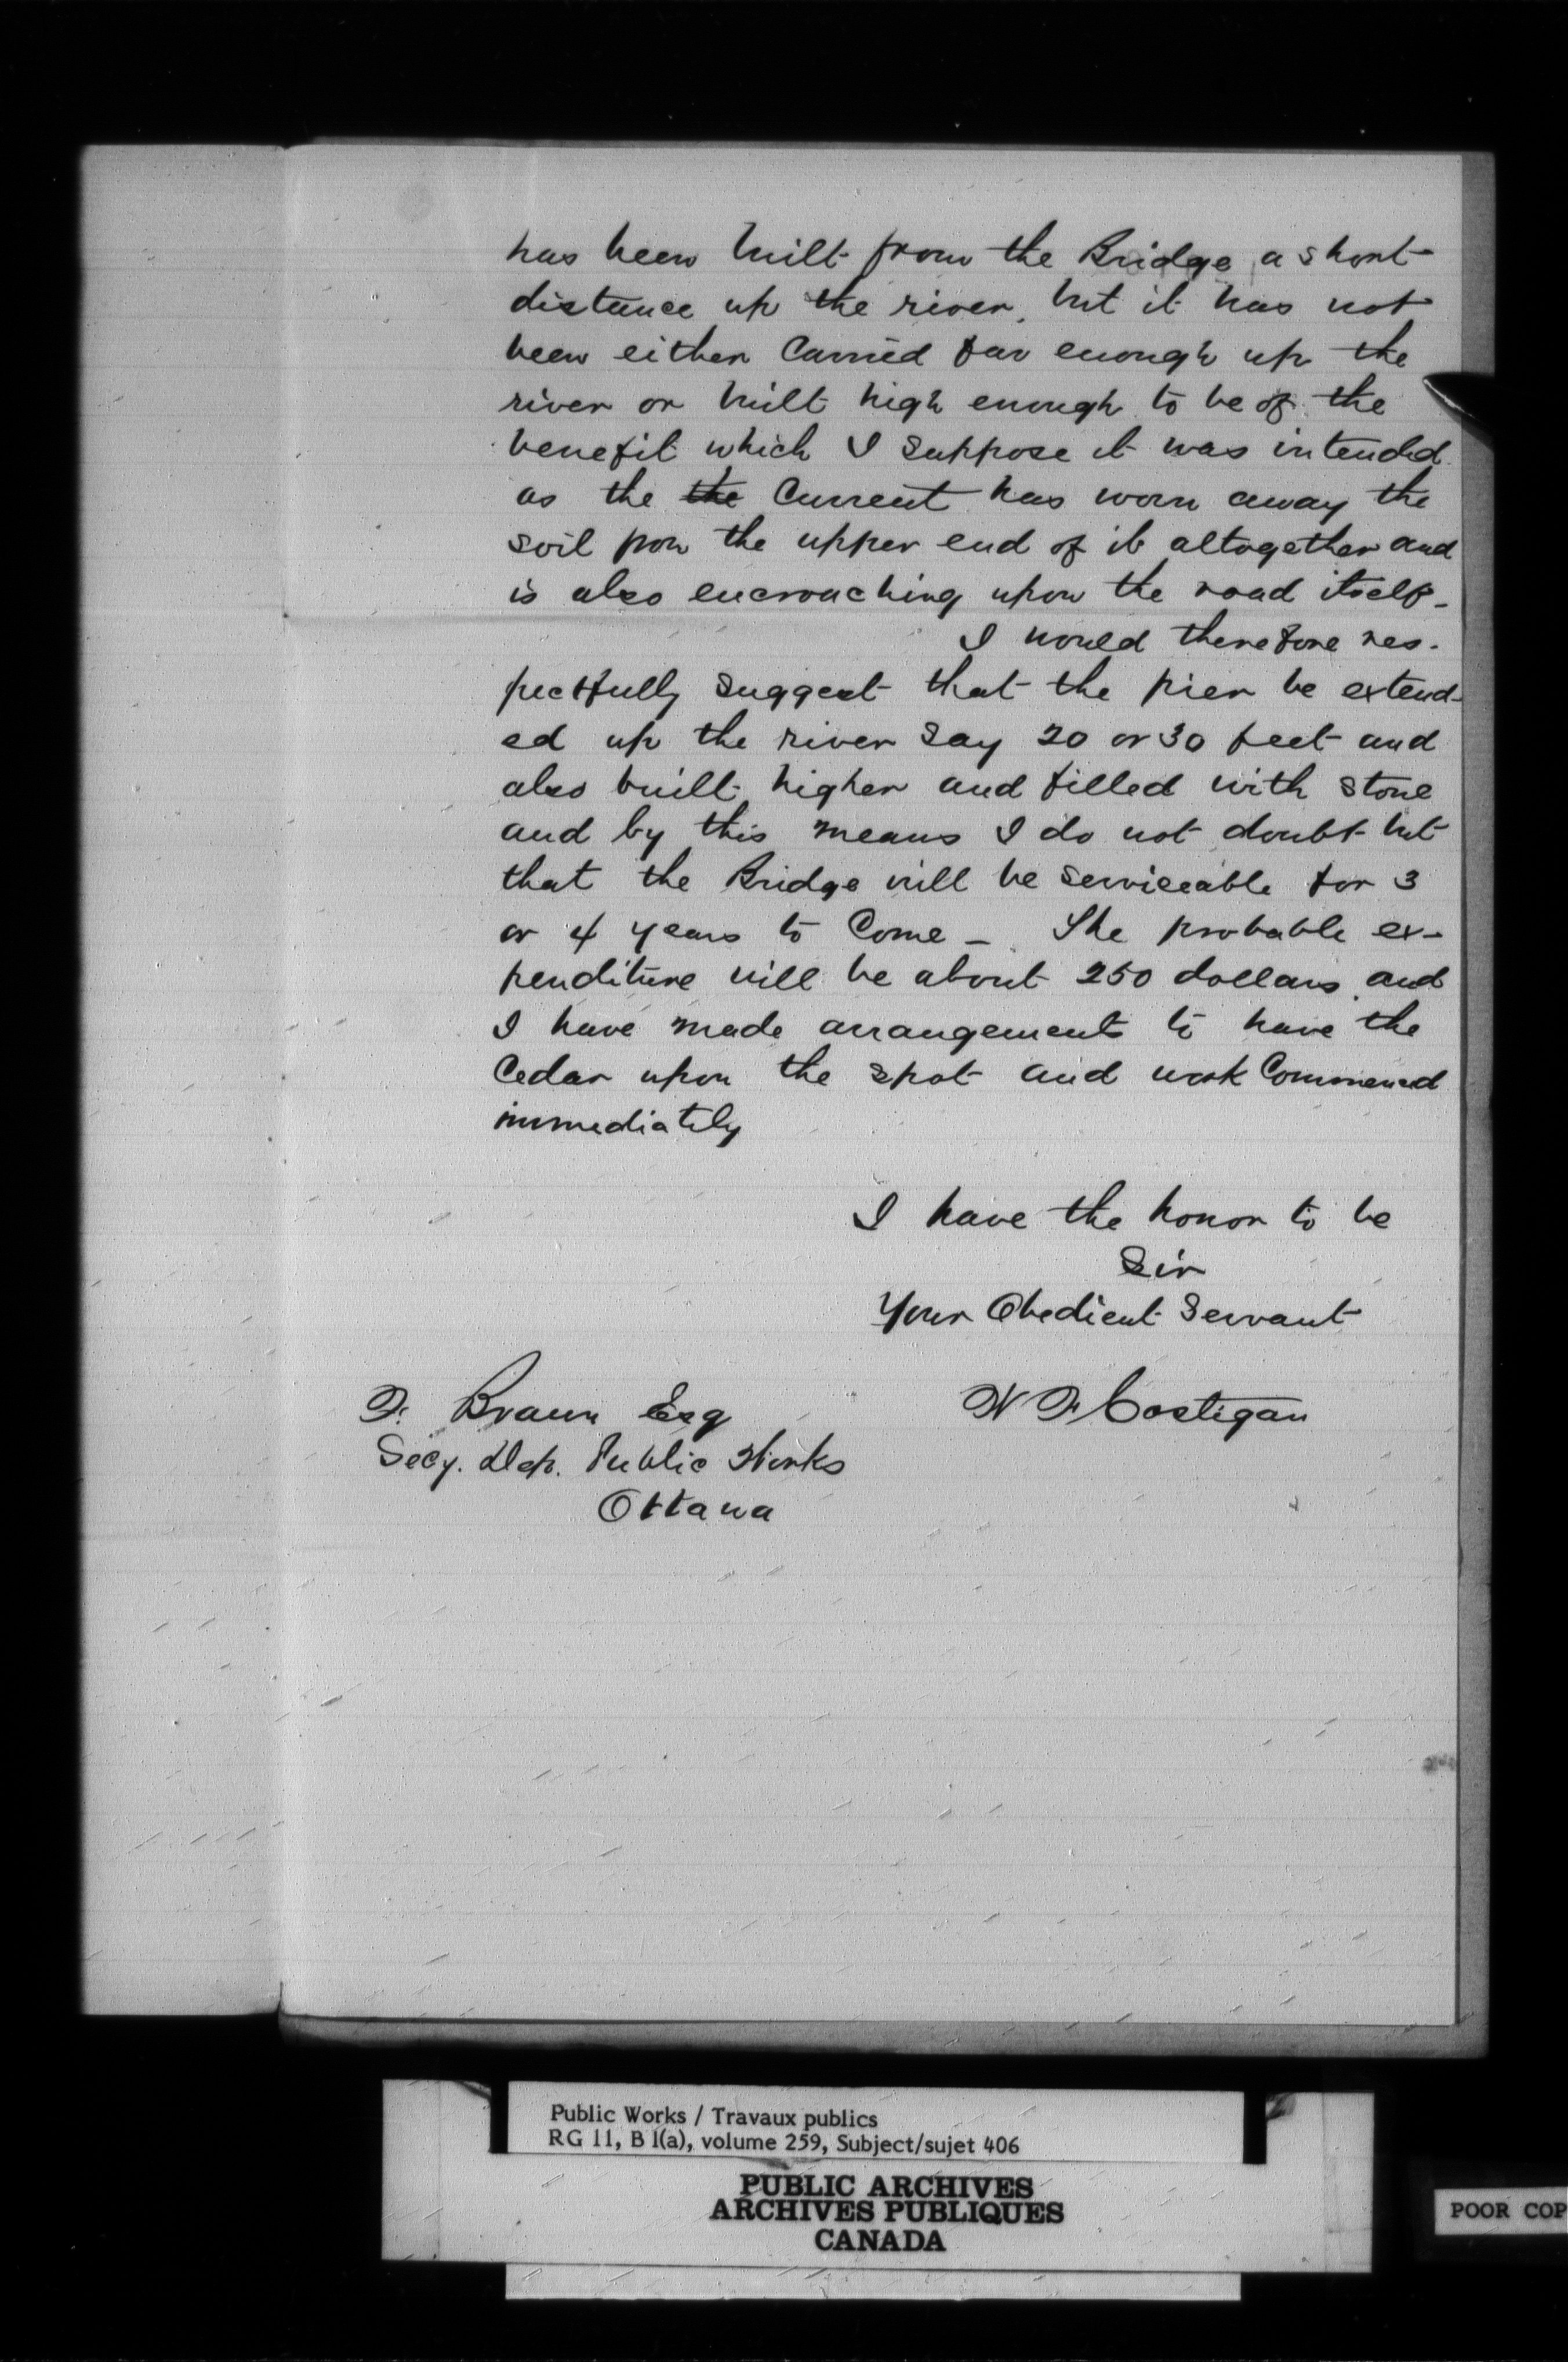 has been built from the Bridge a short
distance up the river, but it has not
been either Carried far enough up the
river or built high enough to be of the
benefit which I suppose it was intended
as the the Current has worn away the
soil from the upper end of it altogether and
is also encroaching upon the road itself -
I would therefore res-
pectfully suggest that the pier be extend-
ed up the river say 20 or 30 feet and
also built higher and filled with stone
and by this means I do not doubt but
that the Bridge will be serviceable for 3
or 4 years to Come - The probable ex-
penditure will be about 250 dollars and
I have made arrangements to have the
Cedar upon the spot and work Commenced
immediately
I have the honor to be
Sir
Your Obedient Servant
F. Braun Esq W F Costigan
Secy. Dep. Public Works
Ottawa
Public Works / Travaux publics
RG 11, B 1(a), volume 259, Subject/sujet 406
PUBLIC ARCHIVES
ARCHIVES PUBLIQUES
CANADA
POOR COP